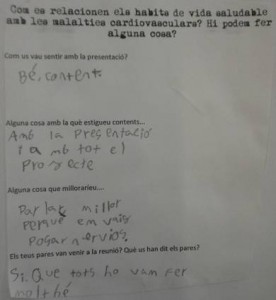 Com es relacionen els habits de vida saludable
amb les malalties cardiovasculars? Hi podem fer
alguna cosa?
Com us vau sentir amb la presentació?
Bé, content.
Alguna cosa amb la què estigueu contents...
Amb la Presentació
i amb tot el
Projecte
Alguna cosa que milloraríeu...
Parlar millor
Perquè em vaig
Posar nerviós.
Els teus pares van venir a la reunió? Què us han dit els pares?
Si. Que tots ho vam fer
molt bé